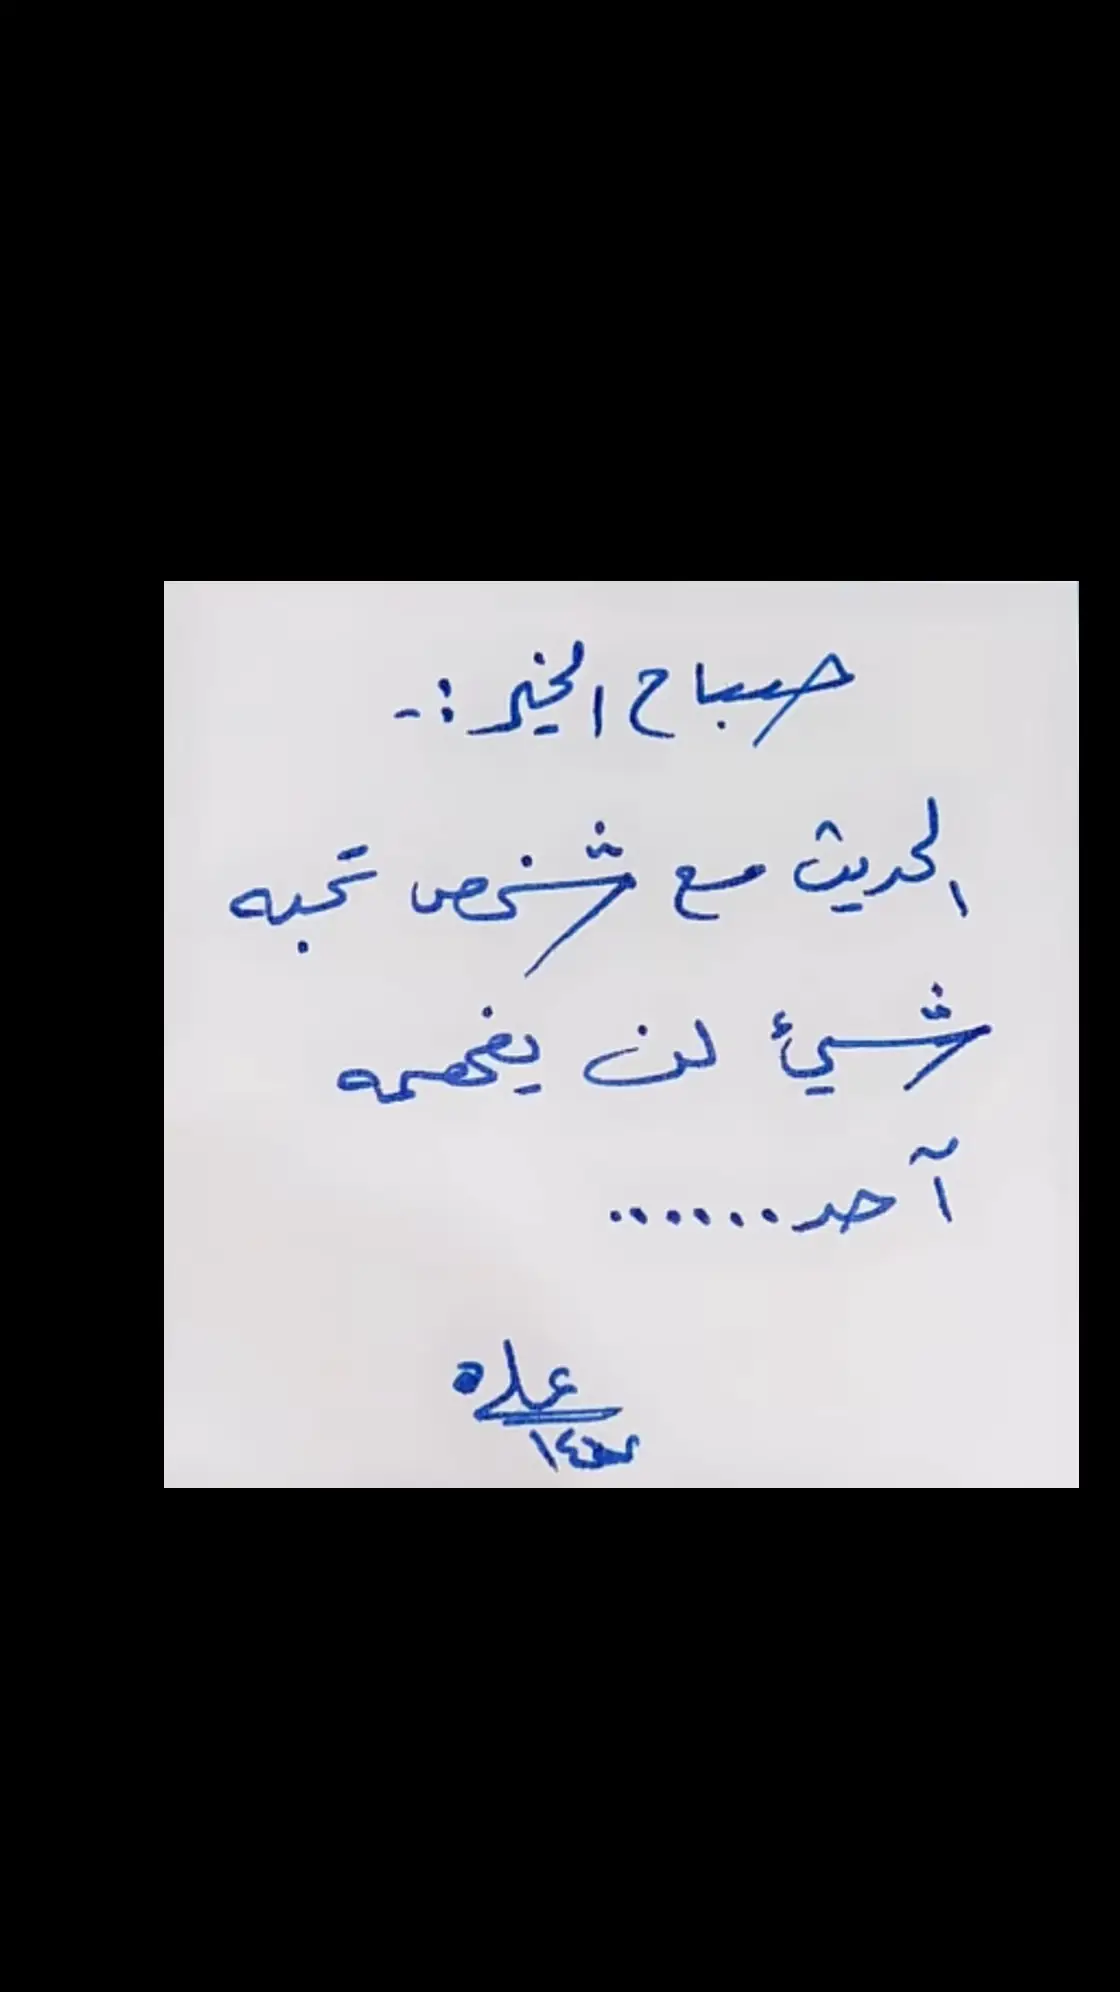 صباح الخير :-
الحديث مع شخص تحبه
شيئ لن يفهمه
آحد......